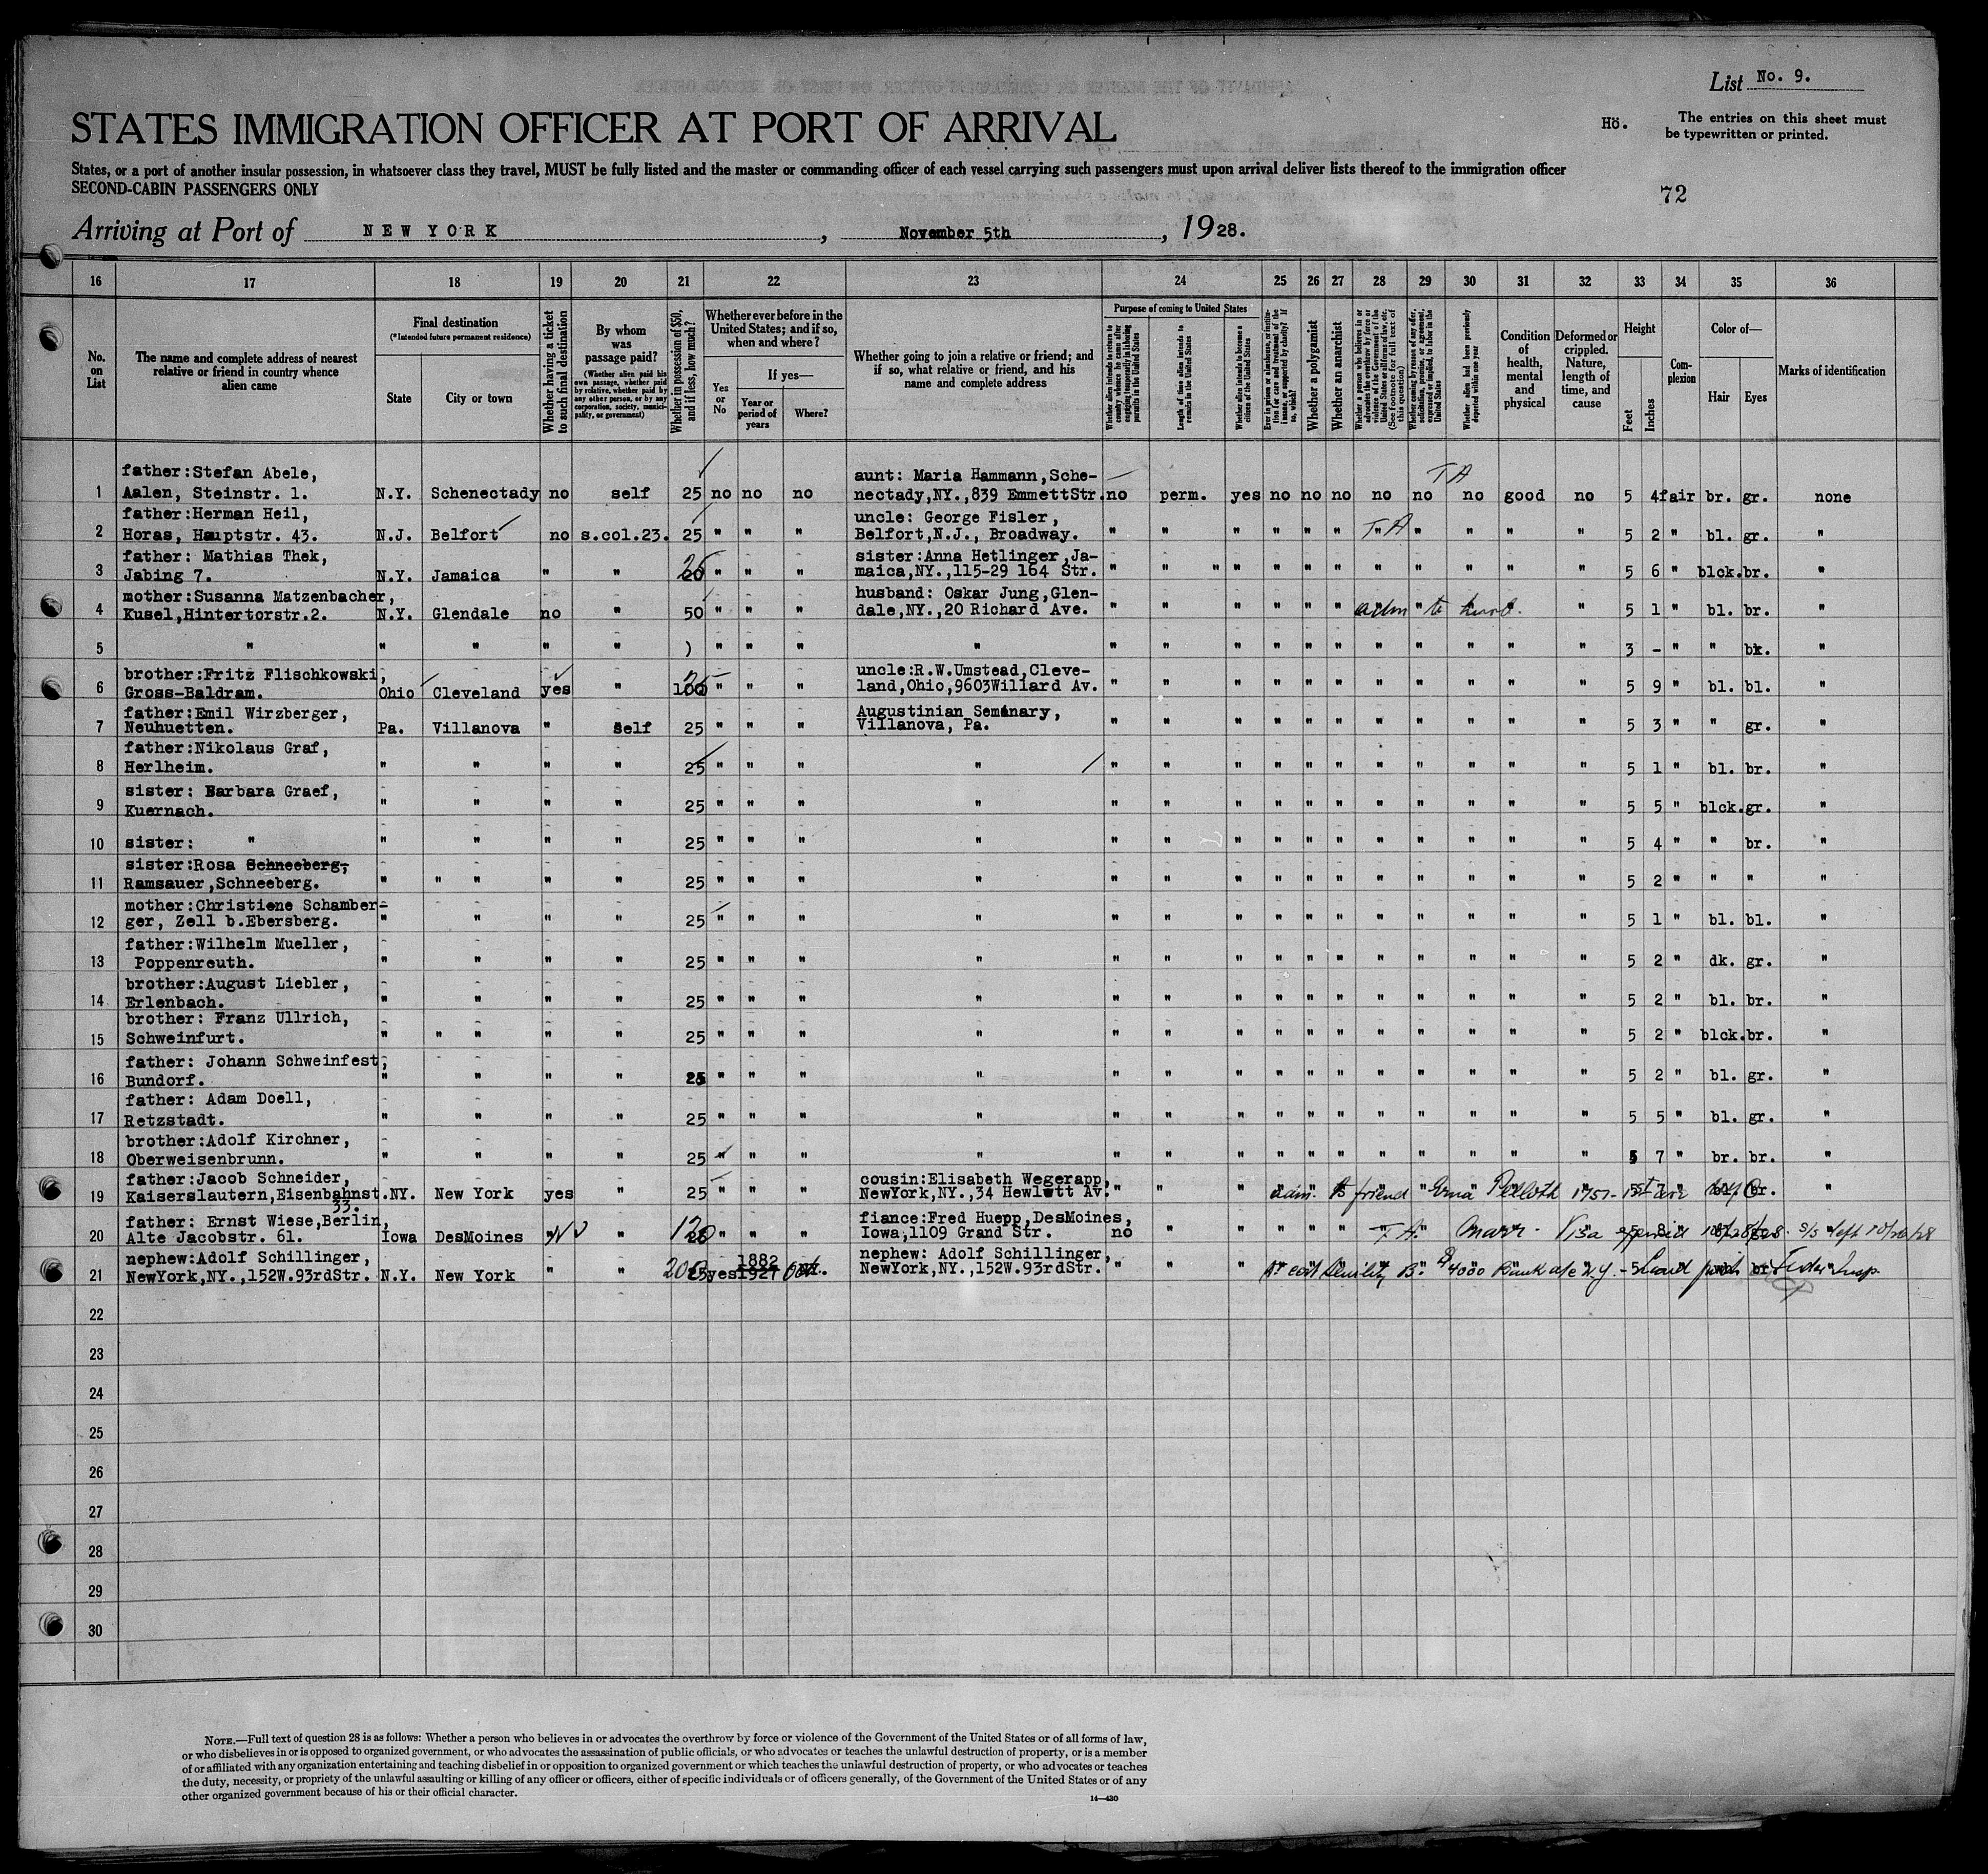 List No. 9.
STATES IMMIGRATION OFFICER AT PORT OF ARRIVAL
Hö.
The entries on this sheet must
be typewritten or printed.
States, or a port of another insular possession, in whatsoever class they travel, MUST be fully listed and the master or commanding officer of each vessel carrying such passengers must upon arrival deliver lists thereof to the immigration officer
SECOND-CABIN PASSENGERS ONLY
72
Arriving at Port of NEW YORK, November 5th, 1928.
16 17 18 19 20 21 22 23 24 25 26 27 28 29 30 31 32 33 34 35 36
No. on List
The name and complete address of nearest relative or friend in country whence alien came
Final destination
(*Intended future permanent residence)
State
City or town
Whether having a ticket to such final destination
By whom was passage paid?
(Whether alien paid his own passage, whether paid by relative, whether paid by any other person, or by any corporation, society, municipality, or government)
Whether in possession of $50, and if less, how much?
Whether ever before in the United States; and if so, when and where?
Yes or No
If yes—
Year or period of years
Where?
Whether going to join a relative or friend; and if so, what relative or friend, and his name and complete address
Purpose of coming to United States
Whether alien intends to return to country whence he came after engaging temporarily in laboring pursuits in the United States
Length of time alien intends to remain in the United States
Whether alien intends to become a citizen of the United States
Ever in prison or almshouse, or institution for care and treatment of the insane, or supported by charity? If so, which?
Whether a polygamist
Whether an anarchist
Whether a person who believes in or advocates the overthrow by force or violence of the Government of the United States or all forms of law, etc. (See footnote for full text of this question)
Whether coming by reason of any offer, solicitation, promise, or agreement, expressed or implied, to labor in the United States
Whether alien had been previously deported within one year
Condition of health, mental and physical
Deformed or crippled. Nature, length of time, and cause
Height
Feet
Inches
Complexion
Color of—
Hair
Eyes
Marks of identification
father:Stefan Abele, aunt: Maria Hammann,Sche- TA
1 Aalen, Steinstr. 1. N.Y. Schenectady no self 25 no no no nectady,NY.,839 EmmettStr. no perm. yes no no no no no no good no 5 4 fair br. gr. none
father:Herman Heil, uncle: George Fisler,
2 Horas, Hauptstr. 43. N.J. Belfort no s.col.23. 25 " " " Belfort,N.J., Broadway. " " " " " " TA " " " " 5 2 " bl. gr. "
father: Mathias Thek, sister:Anna Hetlinger,Ja-
3 Jabing 7. N.Y. Jamaica " " " " " maica,NY.,115-29 164 Str. " " " " " " " " " " " " 5 6 " blck. br. "
mother:Susanna Matzenbacher, husband: Oskar Jung,Glen-
4 Kusel,Hintertorstr.2. N.Y. Glendale no " 50 " " " dale,NY.,20 Richard Ave. " " " " " " adm to husb. " 5 1 " bl. br. "
5 " " " " " ) " " " " " " " " " " " " " " " 3 - " " bk. "
brother:Fritz Flischkowski, uncle:R.W.Umstead,Cleve-
6 Gross-Baldram. Ohio Cleveland yes " " " " land,Ohio,9603Willard Av. " " " " " " " " " " " 5 9 " bl. bl. "
father:Emil Wirzberger, Augustinian Seminary,
7 Neuhuetten. Pa. Villanova " self 25 " " " Villanova, Pa. " " " " " " " " " " " 5 3 " " gr. "
father:Nikolaus Graf,
8 Herlheim. " " " " 25 " " " " " " " " " " " " " " " 5 1 " bl. br. "
sister: Barbara Graef,
9 Kuernach. " " " " 25 " " " " " " " " " " " " " " " 5 5 " blck. gr. "
10 sister: " " " " " 25 " " " " " " " " " " " " " " " 5 4 " " br. "
sister:Rosa Schneeberg,
11 Ramsauer,Schneeberg. " " " " " 25 " " " " " " " " " " " " " " " 5 2 " " " "
mother:Christiene Schamber-
12 ger, Zell b.Ebersberg. " " " " 25 " " " " " " " " " " " " " " " 5 1 " bl. bl. "
father:Wilhelm Mueller,
13 Poppenreuth. " " " " 25 " " " " " " " " " " " " " " " 5 2 " dk. gr. "
brother:August Liebler,
14 Erlenbach. " " " " 25 " " " " " " " " " " " " " " " 5 2 " bl. br. "
brother: Franz Ullrich,
15 Schweinfurt. " " " " " 25 " " " " " " " " " " " " " " " 5 2 " blck. br. "
father: Johann Schweinfest,
16 Bundorf. " " " " 25 " " " " " " " " " " " " " " " 5 2 " bl. gr. "
father: Adam Doell,
17 Retzstadt. " " " " 25 " " " " " " " " " " " " " " " 5 5 " bl. gr. "
brother:Adolf Kirchner,
18 Oberweisenbrunn. " " " " 25 " " " " " " " " " " " " " " " 5 7 " br. br. "
father:Jacob Schneider, cousin:Elisabeth Wegerapp,
19 Kaiserslautern,Eisenbahnst. 33. NY. New York yes " 25 " " " NewYork,NY.,34 Hewlett Av. " " " adm. to friend Erna 1751- 1st ave br. "
father: Ernst Wiese,Berlin, fiance:Fred Huepp,DesMoines,
20 Alte Jacobstr. 61. Iowa DesMoines " " 120 " " " Iowa,1109 Grand Str. no " " " " " T.A. marr. Visa expired 10/28/28. S/S left 10/26/28
nephew:Adolf Schillinger, nephew: Adolf Schillinger,
21 NewYork,NY.,152W.93rdStr. N.Y. New York " " 200 yes 1882 1927 NewYork,NY.,152W.93rdStr. " " " senility B. $4000 Bank a/c N.Y. Insp.
22
23
24
25
26
27
28
29
30
NOTE.—Full text of question 28 is as follows: Whether a person who believes in or advocates the overthrow by force or violence of the Government of the United States or of all forms of law,
or who disbelieves in or is opposed to organized government, or who advocates the assassination of public officials, or who advocates or teaches the unlawful destruction of property, or is a member
of or affiliated with any organization entertaining and teaching disbelief in or opposition to organized government or which teaches the unlawful destruction of property, or who advocates or teaches
the duty, necessity, or propriety of the unlawful assaulting or killing of any officer or officers, either of specific individuals or of officers generally, of the Government of the United States or of any
other organized government because of his or their official character.
14—430